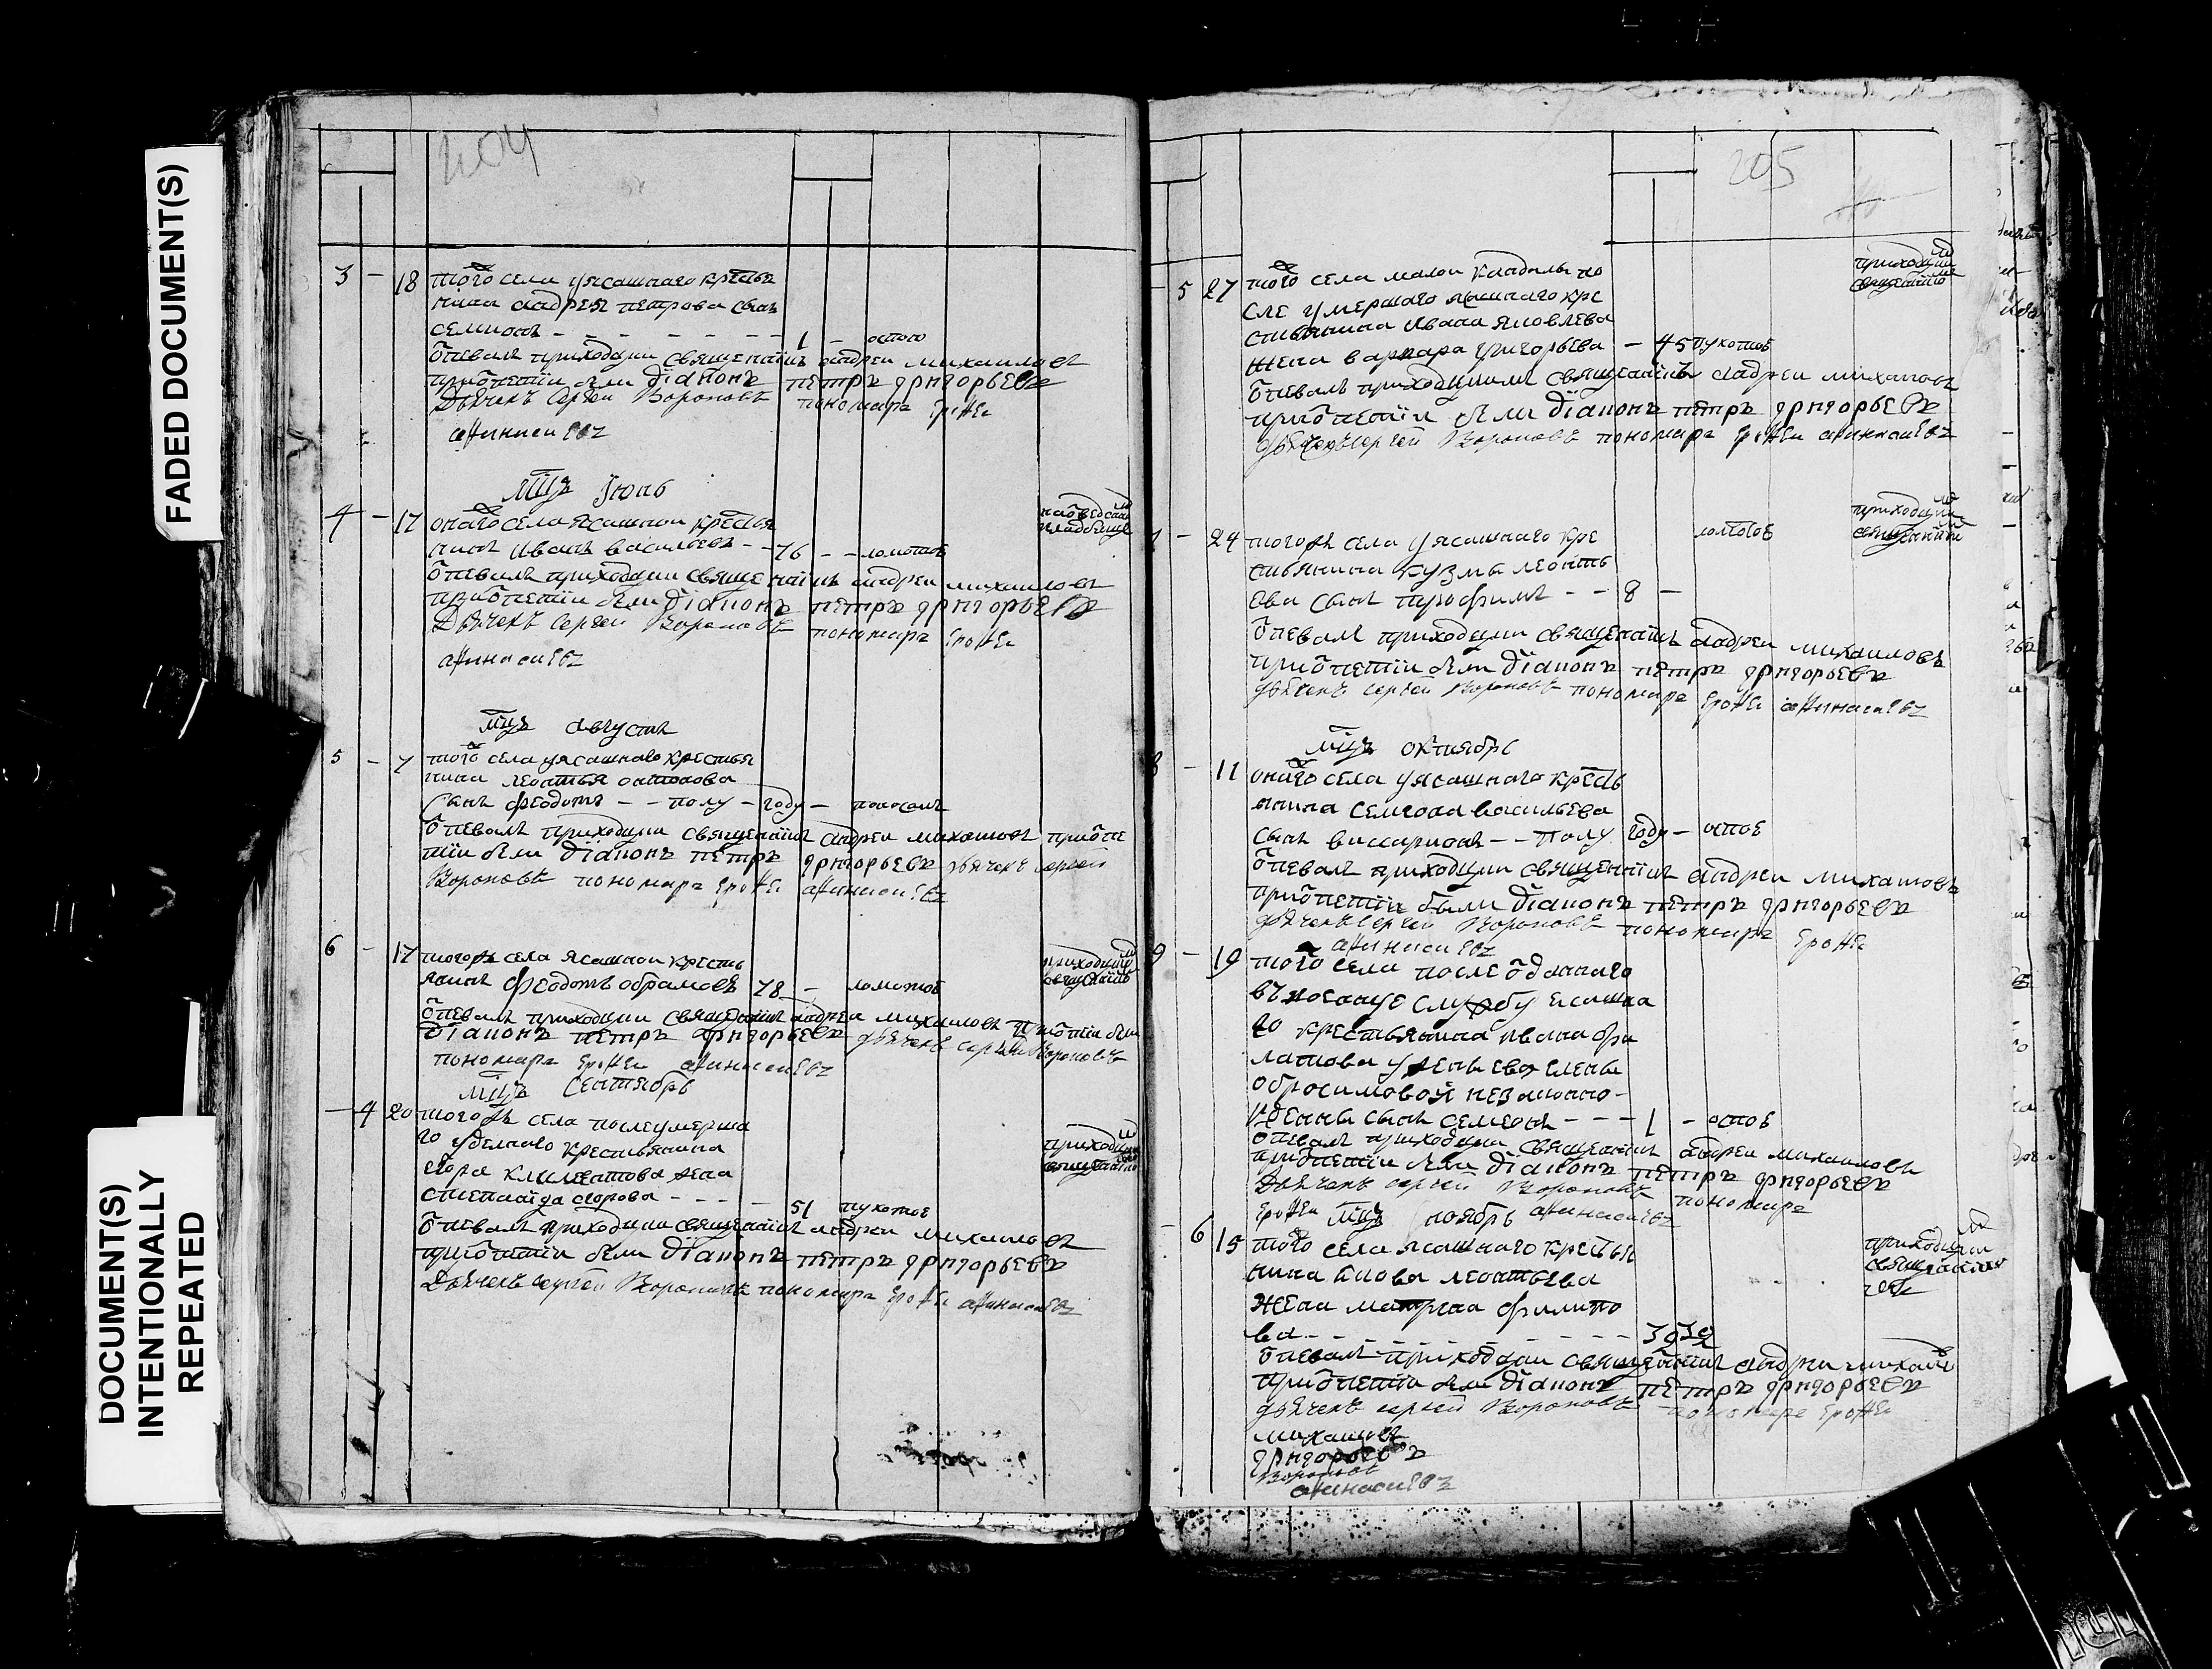 FADED DOCUMENT(S)
DOCUMENT(S)
INTENTIONALLY
REPEATED
204
3 - 18 того села у ясашнаго крестья
нина андрея петрова сынъ
семионъ - - - 1 - оспою
отпевалъ приходции священникъ андреи михаиловъ
приотпетiи были дiаконъ петръ григорьевъ
Дьячекъ Сергеи Вороновъ пономарь Ерофеи
афинасиевъ
Мцъ Iюнь
4 - 17 онаго села ясашнои крестья
нинъ иванъ васильевъ - 76 - ломотою
отпевалъ приходции священникъ андреи михаиловъ
приотпетiи были дiаконъ петръ григорьевъ
Дьячекъ Сергеи Вороновъ пономарь Ерофеи
афинасиевъ
Мцъ августъ
5 - 7 того села у ясашнаго крестья
нина леонтья
сынъ феодотъ - - полу - году - поносомъ
отпевалъ приходции священникъ андреи михаиловъ приотпе
тiи были дiаконъ петръ григорьевъ дьячекъ сергеи
Вороновъ пономарь Ерофеи афинасиевъ
6 - 17 тогожъ села ясашнои кресть
янинъ феодотъ обрамовъ 78 - ломотою
отпевалъ приходции священникъ андреи михаиловъ приотпетiи были
дiаконъ петръ григорьевъ дьячекъ сергеи Вороновъ
пономарь Ерофеи афинасиевъ
Мцъ Сентябрь
- 4 20 тогожъ села послеумерша
го уделнаго крестьянина
егора климентова жена
степанида - - - 51 пухотою
отпевалъ приходции священникъ андреи михаиловъ
приотпетiи были дiаконъ петръ григорьевъ
Дьячекъ Сергеи Вороновъ пономарь Ерофеи афинасиевъ
205
- 5 27 того села малои по
сле умершаго ясашнаго кре
стьянина ивана яковлева
жена варвара григорьева - 45 пухотою
отпевалъ приходции священникъ андреи михаиловъ
приотпетiи были дiаконъ петръ григорьевъ
дьячекъ Сергеи Вороновъ пономарь Ерофеи афинасиевъ
- 24 тогожъ села у ясашнаго кре
стьянина кузмы леонть
ева сынъ - - 8 -
отпевалъ приходции священникъ андреи михаиловъ
приотпетiи были дiаконъ петръ григорьевъ
дьячекъ сергеи Вороновъ пономарь Ерофеи афинасиевъ
Мцъ октябрь
8 - 11 онаго села у ясашнаго кресть
янина семиона васильева
сынъ виссарионъ - - полу году - оспою
отпевалъ приходции священникъ андреи михаиловъ
приотпетiи были дiаконъ петръ григорьевъ
дьячекъ Сергеи Вороновъ пономарь Ерофеи
афинасиевъ
9 - 19 того села после отданнаго
въ службу ясашна
го крестьянина ивана фи
латова у жены ево елены
обросимовой незаконно-
жденны сынъ семеонъ - - - 1 - оспою
отпевалъ приходции священникъ андреи михаиловъ
приотпетiи были дiаконъ петръ григорьевъ
Дьячекъ сергеи Вороновъ пономарь
Ерофеи афинасиевъ
Мцъ ноябрь
- 6 15 того села ясашнаго крестья
нина леонтьева
жена матрона филипо
ва - - - 39
отпевалъ приходции священникъ андреи михаило
приотпетiи были дiаконъ петръ григорьевъ
дьячекъ сергеи Вороновъ пономарь Ерофеи
михаиловъ
григорьевъ
Вороновъ
афинасиевъ